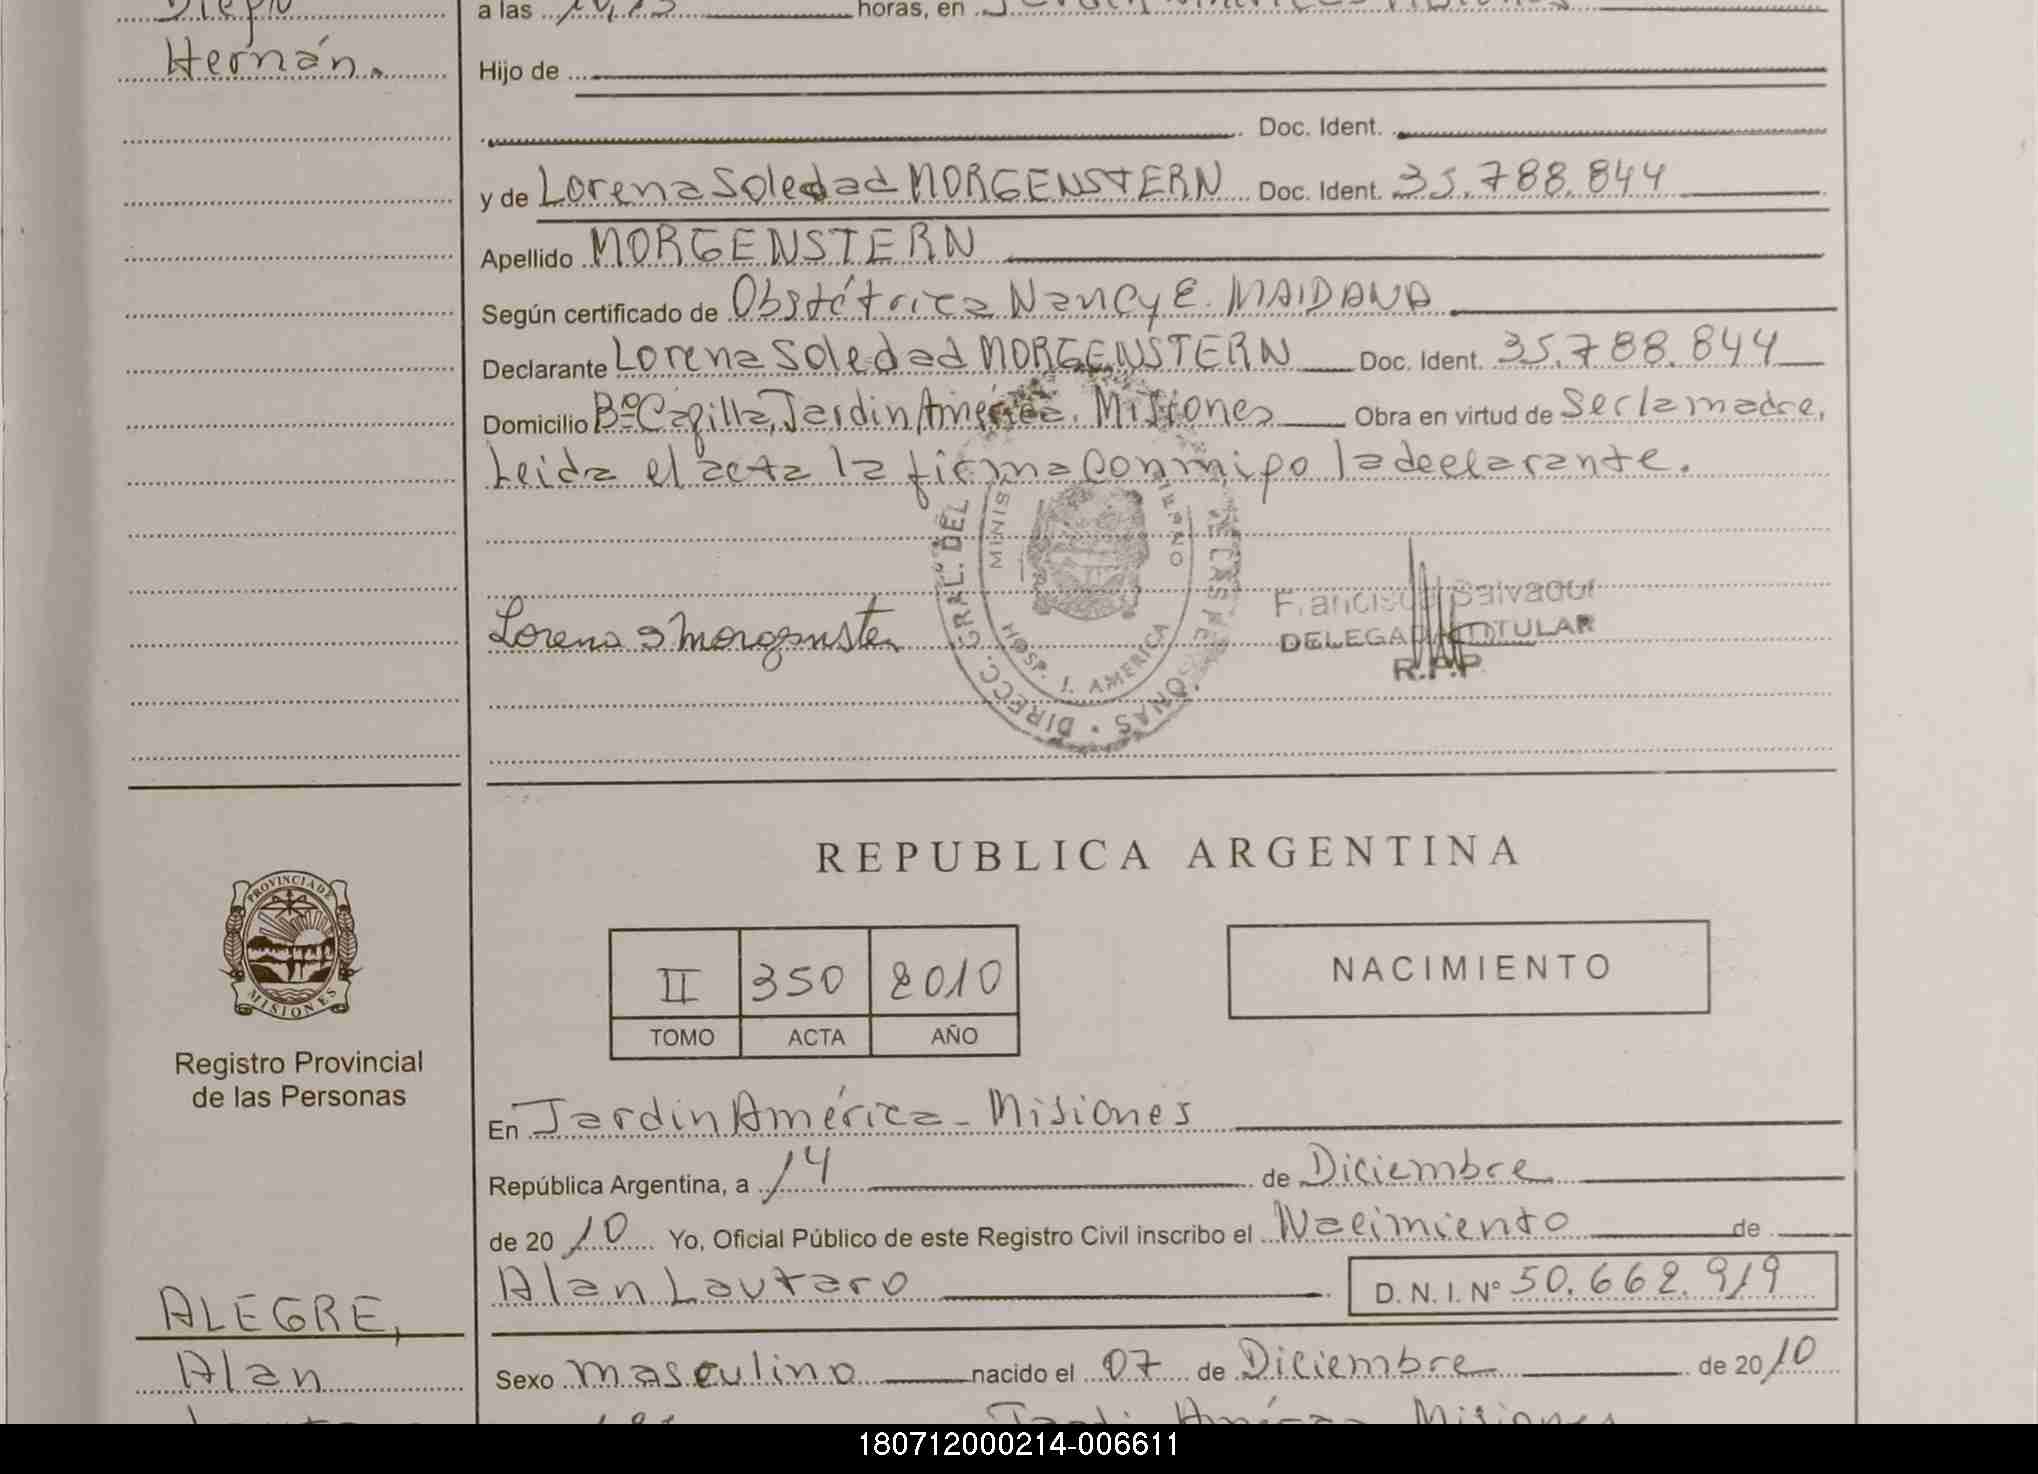 Diego
Hernán.
a las 10,15 horas, en Jardín América Misiones
Hijo de
Doc. Ident.
y de Lorena Soledad MORGENSTERN Doc. Ident. 35.788.844
Apellido MORGENSTERN
Según certificado de Obstétrica Nancy E. MAIDANA
Declarante Lorena Soledad MORGENSTERN Doc. Ident. 35.788.844
Domicilio Bº Capilla, Jardin América. Misiones Obra en virtud de Ser la madre,
Leida el acta la firma conmigo la declarante.
Lorena S Morgenster
DIRECC. GRAL. DEL
MINIS
HOSP. J. AMERICA
Francisco Salvador
DELEGADA TITULAR
R.P.P
REPUBLICA ARGENTINA
PROVINCIA DE
MISIONES
Registro Provincial
de las Personas
II 350 2010
TOMO ACTA AÑO
NACIMIENTO
En Jardin América - Misiones
República Argentina, a 14 de Diciembre
de 2010 Yo, Oficial Público de este Registro Civil inscribo el Nacimiento de
Alan Lautaro D.N.I. Nº 50.662.919
ALEGRE,
Alan
Sexo masculino nacido el 07 de Diciembre de 2010
Jardin América Misiones
180712000214-006611